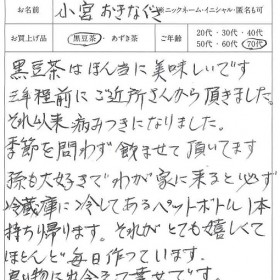 お名前 小宮 おきな ※ニックネーム・イニシャル・匿名も可
お買上げ品 黒豆茶・あずき茶 ご年齢 20代・30代・40代
50代・60代・70代
黒豆茶はほん当に美味しいです
三年程前にご近所さんから頂きました。
それ以来病みつきになりました。
季節を問わず飲ませて頂いてます
孫も大好きでわが家に来ると必ず
冷蔵庫に冷してあるペットボトル1本
持ち帰ります。それがとても嬉しくて
ほんと毎日作っています。
良い物に出会えて幸せです。